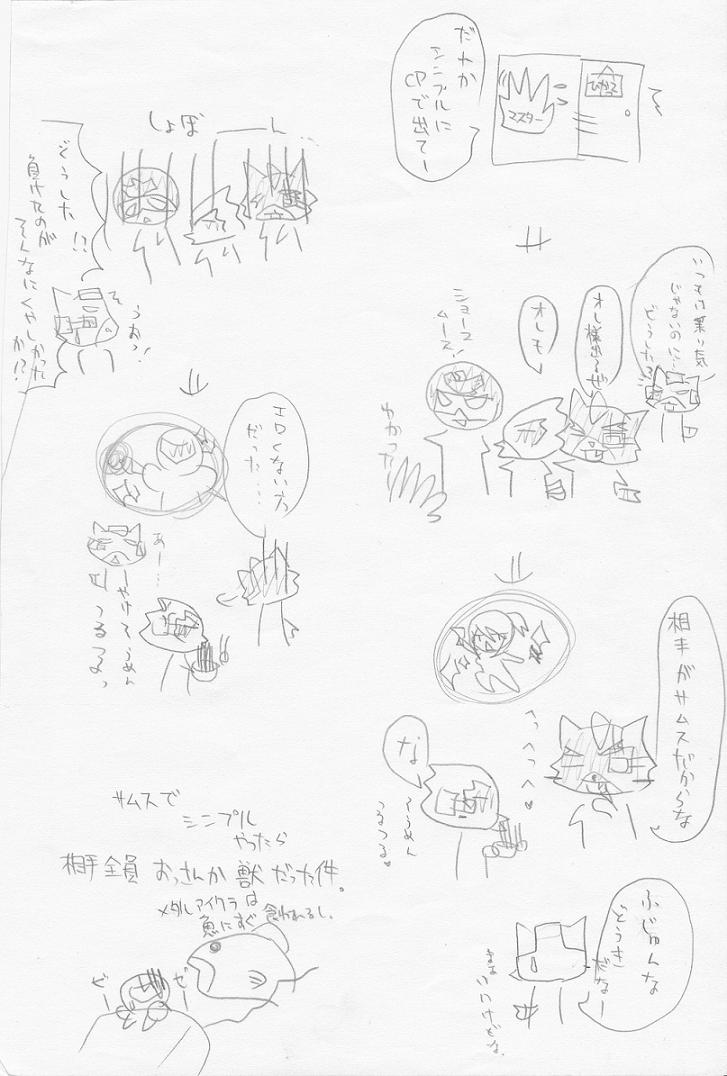 だれか
シンプルに
CPで出てー
マスター
ひかえ
いつもは業い気
じゃないのに…
どうした?
オレ様出るぜ
オレも
ショーヌ
ムース!
わかった!
相手がサムスだからな
へっへっへ
な
そうめん
つるつる
ふじゅんな
どうき
だなー
まぁ
いいけどな。
しょぼーん…
どうした!?
負けたのが
そんなにくやしかった
か!?
うおっ!
エロくない方
だった…
あー…
やけそうめん
つるつるっ
サムスで
シンプル
やったら
相手全員おっさんか獣だった件。
メタルアイクラは
魚にすぐ食われるし。
ゼー
ゼー